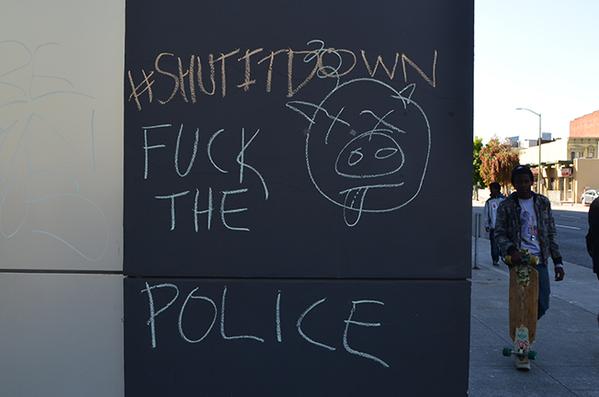 #SHUTITDOWN
FUCK
THE
POLICE